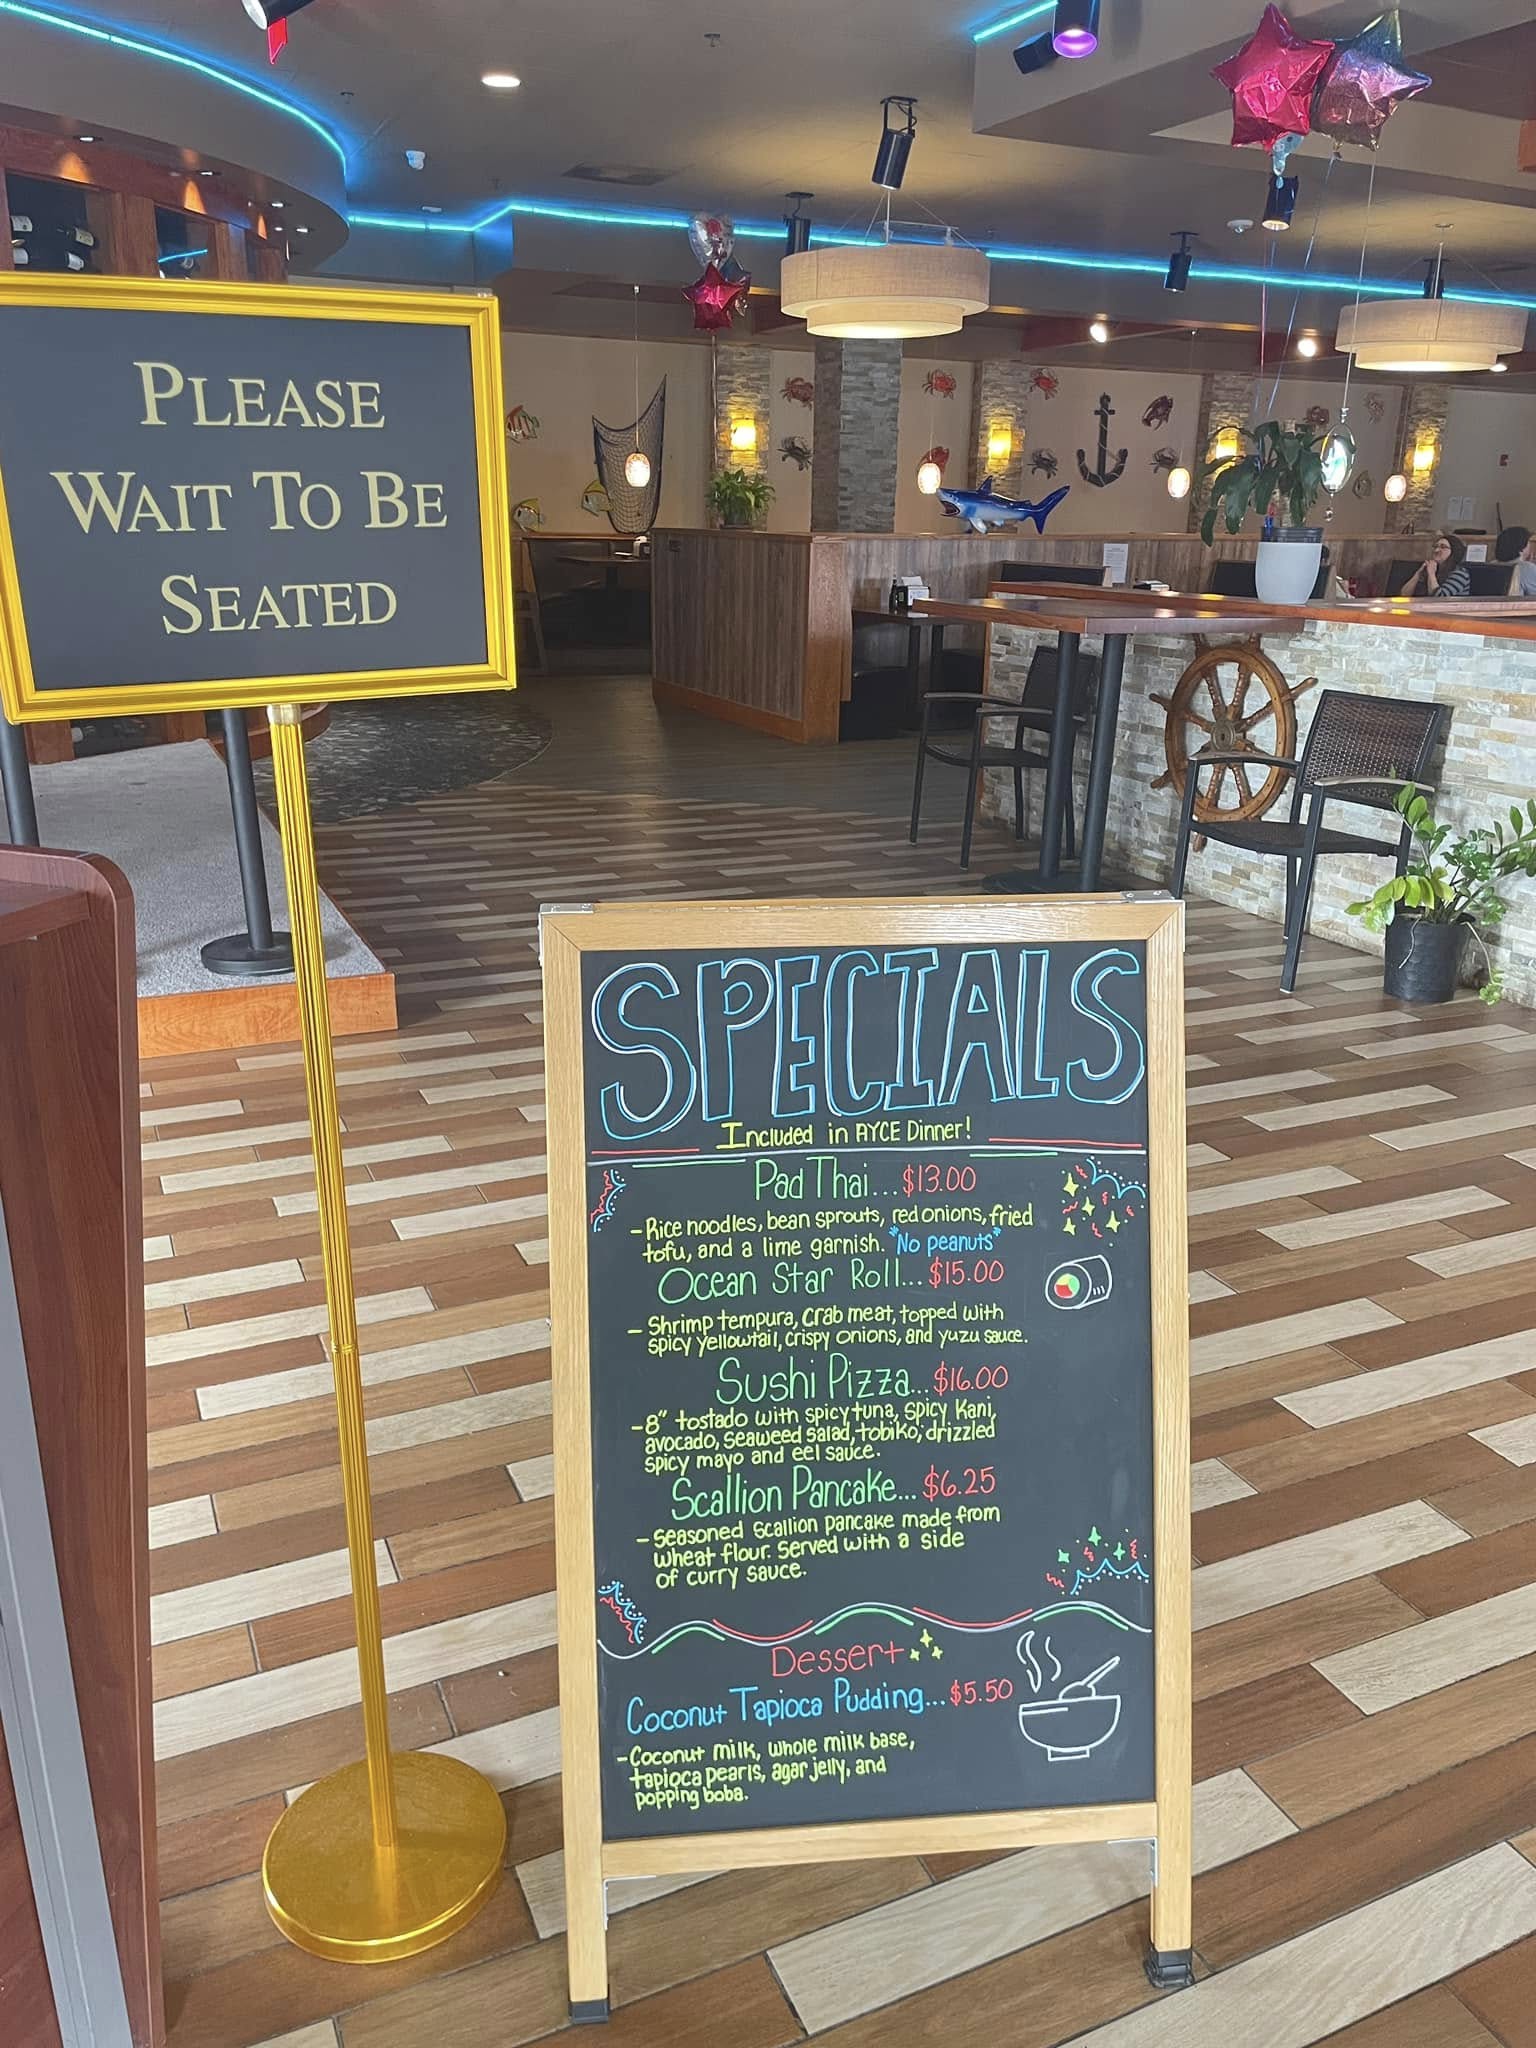 PLEASE
WAIT TO BE
SEATED
SPECIALS
Included in AYCE Dinner!
Pad Thai...$13.00
-Rice noodles, bean sprouts, red onions, fried
tofu, and a lime garnish. *No peanuts*
Ocean Star Roll...$15.00
- Shrimp tempura, crab meat, topped with
spicy yellowtail, crispy onions, and yuzu sauce.
Sushi Pizza...$16.00
-8" tostado with spicy tuna, spicy Kani,
avocado, seaweed salad, tobiko; drizzled
spicy mayo and eel sauce.
Scallion Pancake...$6.25
-Seasoned scallion pancake made from
wheat flour. Served with a side
of curry sauce.
Dessert
Coconut Tapioca Pudding...$5.50
-Coconut milk, whole milk base,
tapioca pearls, agar jelly, and
popping boba.